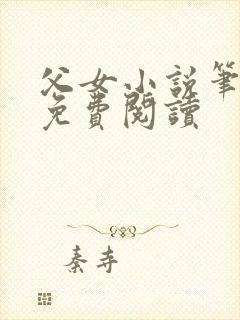 父女小说筆
免費閱讀
秦寺